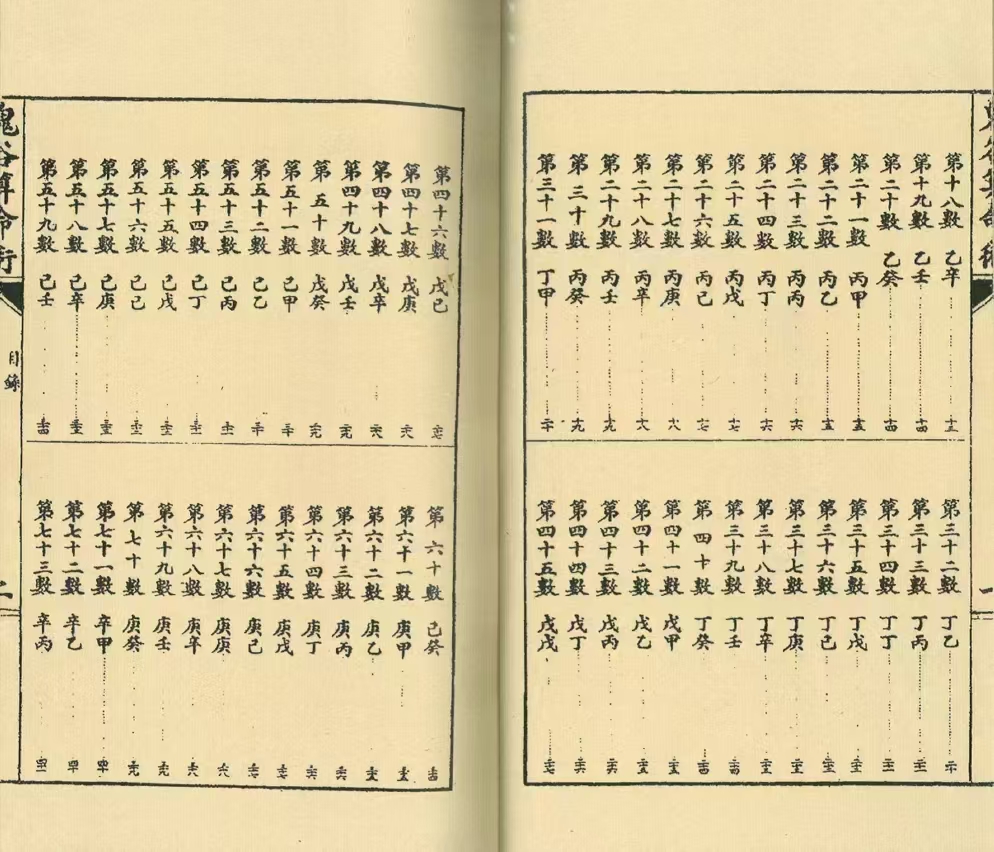 第十八數 乙辛 十三
第十九數 乙壬 十四
第二十數 乙癸 十四
第二十一數 丙甲 十五
第二十二數 丙乙 十五
第二十三數 丙丙 十六
第二十四數 丙丁 十六
第二十五數 丙戊 十七
第二十六數 丙己 十七
第二十七數 丙庚 十八
第二十八數 丙辛 十八
第二十九數 丙壬 十九
第三十數 丙癸 十九
第三十一數 丁甲 二十
第三十二數 丁乙 二十
第三十三數 丁丙 二十一
第三十四數 丁丁 二十一
第三十五數 丁戊 二十二
第三十六數 丁己 二十二
第三十七數 丁庚 二十三
第三十八數 丁辛 二十三
第三十九數 丁壬 二十四
第四十數 丁癸 二十四
第四十一數 戊甲 二十五
第四十二數 戊乙 二十五
第四十三數 戊丙 二十六
第四十四數 戊丁 二十六
第四十五數 戊戊 二十七
第四十六數 戊己 二十七
第四十七數 戊庚 二十八
第四十八數 戊辛 二十八
第四十九數 戊壬 二十九
第五十數 戊癸 二十九
第五十一數 己甲 三十
第五十二數 己乙 三十
第五十三數 己丙 三十一
第五十四數 己丁 三十一
第五十五數 己戊 三十二
第五十六數 己己 三十二
第五十七數 己庚 三十三
第五十八數 己辛 三十三
第五十九數 己壬 三十四
第六十數 己癸 三十四
第六十一數 庚甲 三十五
第六十二數 庚乙 三十五
第六十三數 庚丙 三十六
第六十四數 庚丁 三十六
第六十五數 庚戊 三十七
第六十六數 庚己 三十七
第六十七數 庚庚 三十八
第六十八數 庚辛 三十八
第六十九數 庚壬 三十九
第七十數 庚癸 三十九
第七十一數 辛甲 四十
第七十二數 辛乙 四十
第七十三數 辛丙 四十一
鬼谷算命術 目錄 二